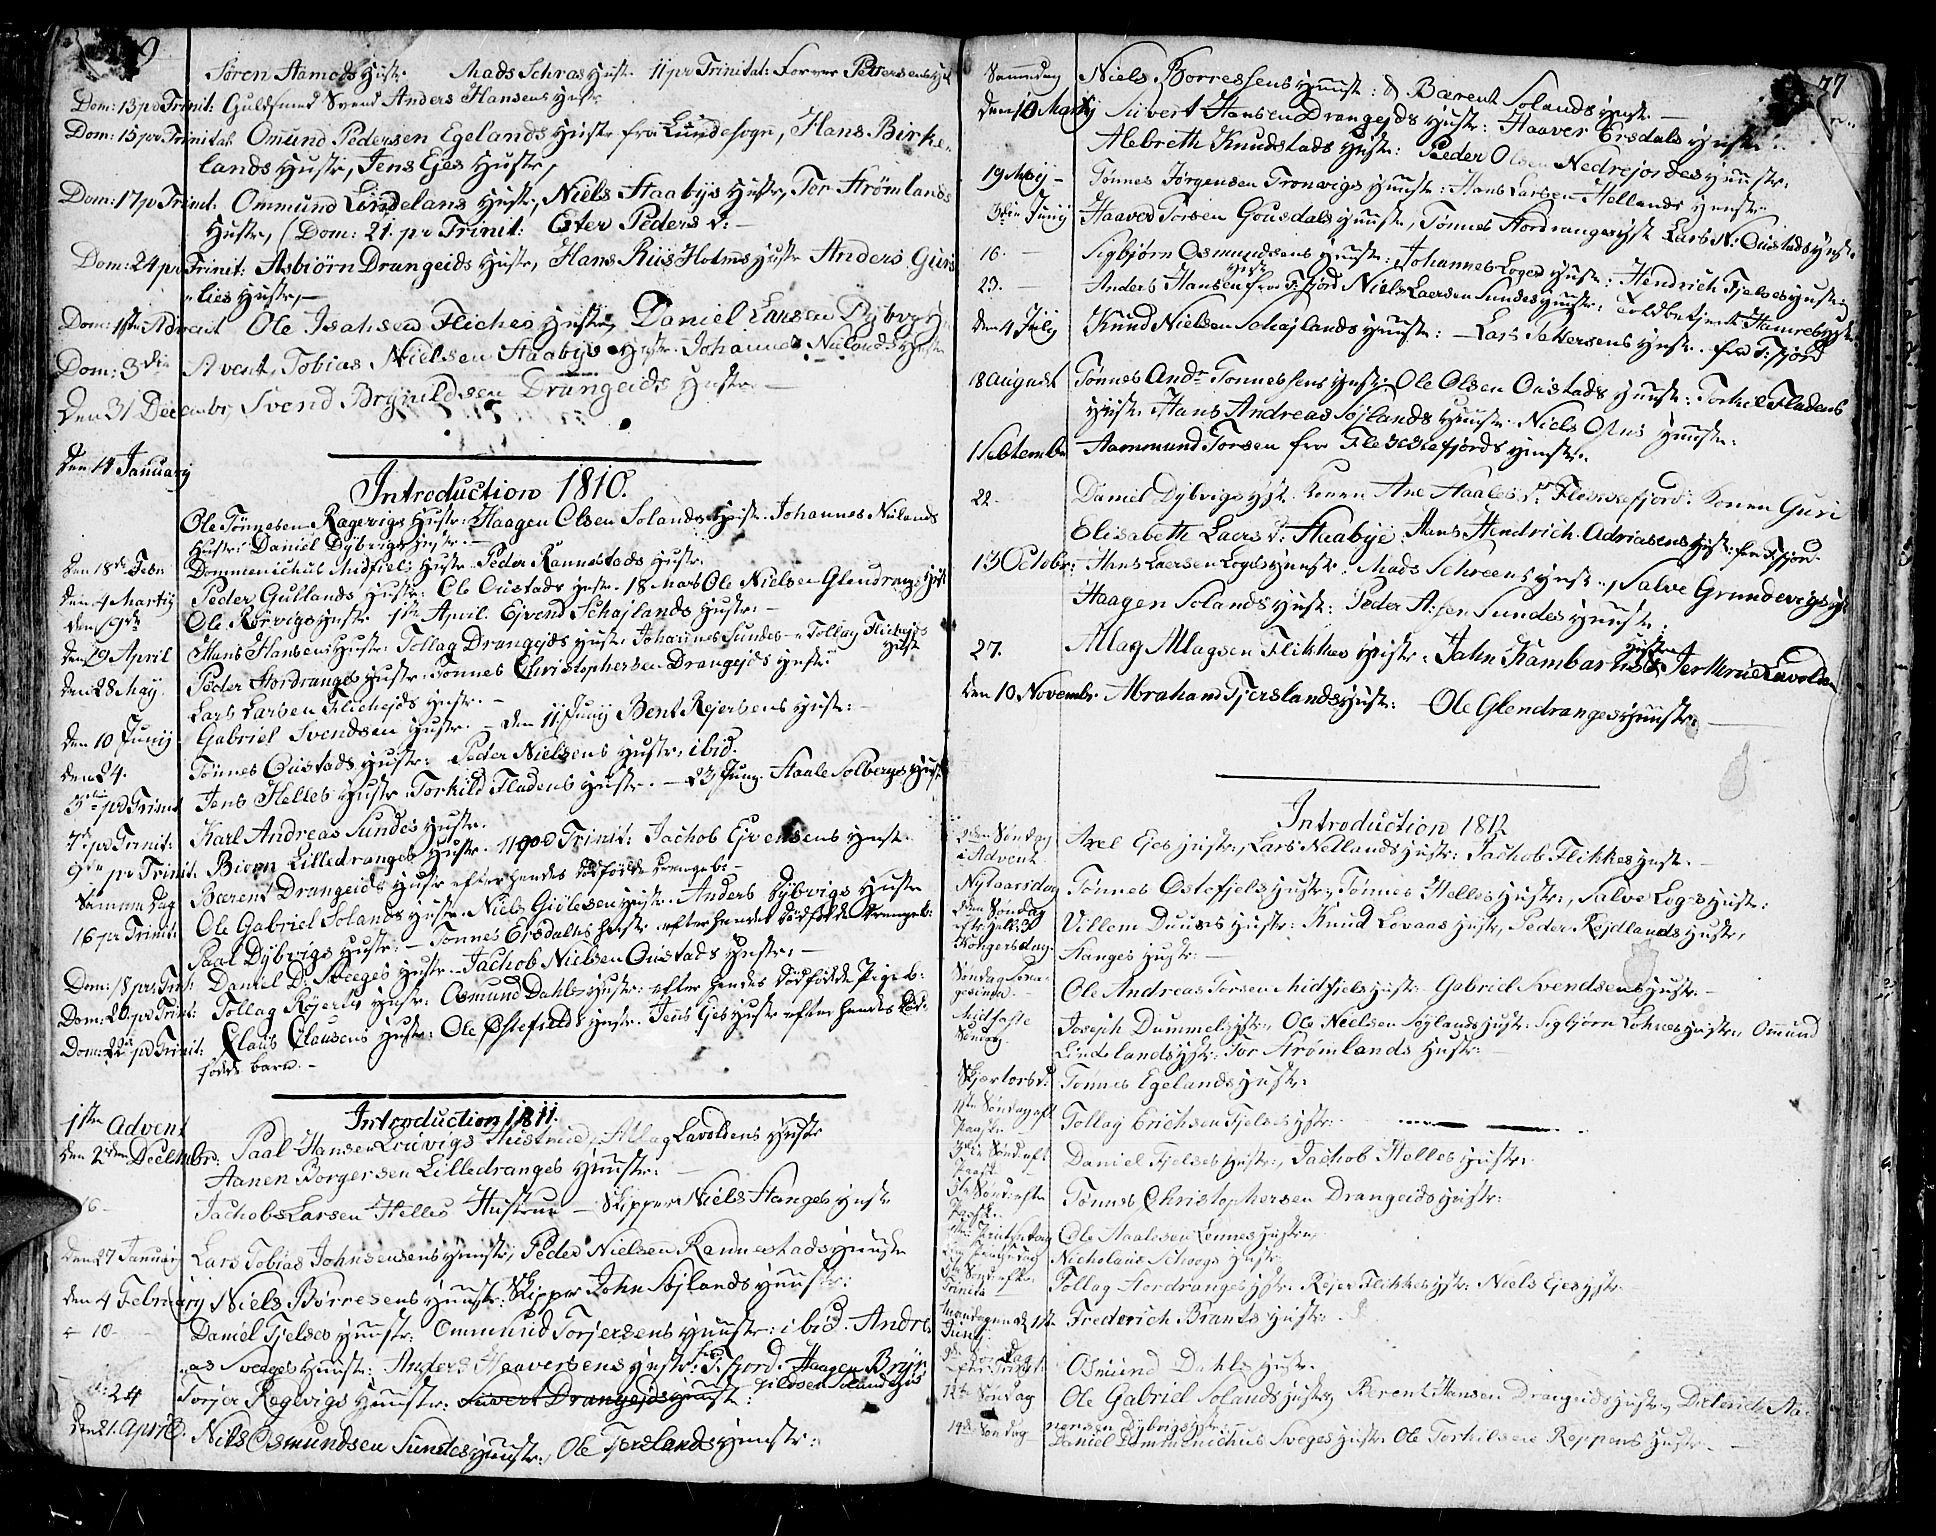 Søren Stameds Hustr. Mads Schras Hustr. 11 pr Trinitat: Forner Pettersens Hust
Dom: 13 po Trinit: Guldsmed Svend Anders Hansens Hustr
Dom: 15 po Trinitat Omund Pedersen Egelands Hustr fra Lundesogn, Hans Birke-
lands Hustr, Jens Ejes Hustr,
Dom: 17 p Trinit. Ommund Lindelans Hust, Niels Staabijs Hustr, Tor Strømlands
Hustr, (Dom: 21: pr Trinit: Ester Peders d: -
Dom: 24 pr Trinit: Asbiørn Drangeids Hustr, Hans Riis Holms Hustr Anders Guris
"lies Hustr, -
Dom: 1ste Advent Ole Isahsen Fliches Hustr, Daniel Larsen Dybvigs
Dom: 3die Avent, Tobias Nielsen Staabijs Hustr. Johannes Nulands Hustr
Den 31 Decembr Svend Brynildsen Drangeids Hustr. -
Introduction 1810.
Den 14 Januarij
Ole Tønnesen Rægevigs Hustr: Haagen Olsen Solands Hustr. Johannes Nulands
Hustr: Daniel Dybvigs Hustr. -
Den 18de Febr. Dommenichus Midfiels Hustr. Peder Rannestads Hustr.
den 4 Martij Peder Gullands Hustr: Ole Oustads Hustr. 18 Mars Ole Nielsen Glendrangs Hust
Ole Rørvigs Hustr 1ste April. Ejvend Schajlands Hustr: -
Den 29 April Hans Hansens Hustr: Tollag Drangejds Hustr. Johannes Sundes - Tollag Flichejs Hust
den 28 May. Peder Hordranges Hustr. Tønnes Christophersen Drangejds Hustr:
Lars Larsen Flichejds Hustr. -
den 10 Junij Gabriel Svendsen Hustr. - den 11 Junij Bent Rejersens Hustr: -
den 24. Tønnes Oustads Hustr: Peder Nielsens Hustr. ibid.
3die po Trinit Jens Helles Hustr. Torkild Fladens Hustr. - 23 Juny. Staale Solbergs Hust
7de po Trinit: Karl Andreas Sundes Hustr.
9de pr Trinit. Biørn Lilledranges Hustr. 11 po Trinit: Jachob Ejvensens Hustr.
Samme Dag Bærent Drangeids Hustr efter hendes dødfødde Drengeb: -
16 pr Trinit: Ole Gabriel Solands Hustr. Niels Giølesen Hustr. Anders Dybvigs Hustr
Paal Dybvigs Hustr: - Tønnes Ersdahls Hustr efter hendes dødfødde Drengeb:
Dom: 18 pr Tri: Daniel D: Sveeges Hustr. Jachob Nielsen Oustads Hustr: -
Dom: 20 po Trint: Tollag Røjerts Hustr: Osmund Dahls Hustr: efter hendes dødfødde Pigeb:
Dom: 22 po Trinit: Claus Clausens Hustr: Ole Østefields Hustr. Jens Ejes Hustr efter hendes død-
fødde barn. -
Introduction 1811.
1ste Advent
Paal Hansen Lidvigs Hustrue, Allag Lavoldens Hustr
den 2den Decembr: Aanen Borgersen Lilledranges Hustr: -
16 - Jachobs Larsen Helles Hustrue - Skipper Niels Stanges Hustr
Den 27 Januar Lars Tobias Johnsensens Hustr, Peder Nielsen Rannestads Hustr
den 4 Februarij Niels Børresens Hustr: Skipper John Søjlands Hustr:
- 10 - Daniel Fjelses Hustr: Ommund Torjersens Hustr: ibid. Andre-
"as Sveges Hustr: Anders Haaversens Hustr: fra F: fjord. Haagen Bryn-
24 Torjer Regevigs Hustr: Sivert Drangejds Hustr: jildsen Solands Hus
Den 21. April. Niels Osmundsen Sundes Hustr:, Ole Fjerslands Hustr:
77
Sammedag Niels Børresens Hustr: & Bærent Solands Hustr. -
den 10 Martij Sivert Hansen Drangejds Hustr: Haaver Ersdals Hustr:
Alebreth Knudstads Hustr: Peder Olsen Nedrejordes Hustr:
19 Maij - Tønnes Jørgensen Tronvigs Hustr: Hans Larsen Hellands Hustr:
3die Junij Haaver Torsen Gousdals Hustr, Tønnes Hordranges Hust Lars N: Oustads Hustr.
16. - Sigbjørn Osmundsens Hustr: Johannes Loges Hustr: Hendrich Fjelses Hustr:
23. - Anders Hansen Hustr fra F: fjord Niels Laersen Sundes Hustr: Toldbetjent Hamres Hustr
den 4 Julij Knud Nielsen Schajlands Hustr: - Lars Pettersens Hustr. fra F: fjord
18 August Tønnes Andr. Tønnessens Hustr. Ole Olsen Oustads Hustr: Torkel Fladens
Hustr. Hans Andreas Søjlands Hustr. Niels Olsens Hustr:
1 Septembr Aammund Torsen fra Flecchefjords Hustr.
22. Daniel Dybvigs Hustr. Konen Ane Staales d: Flecchefjord: Konen Guri
Elisabeth Laers d: Staabye: Hans Hendrich Adriasens Hust: fra F: fjord
13 October: Hans Laersen Loges Hustr. Mads Schreens Hustr., Salve Grundevigs Hus
Haagen Solands Hust: Peder A:sen Sundes Hustr:
27. Allag Allagsen Flikkes Hustr: Jahn Kambas Hustr
Den 10 Novembr. Abraham Fjerslands Hustr: Ole Glendranges Hustr: -
Introduction 1812
2den Søndag i Advent Axel Ejes Hustr, Lars Nellands Hustr: Jachob Flikkes Hustr. -
Nytaarsdag Tønnes Østefjels Hustr, Tønnes Helles Hustr:, Salve Loges Hustr:
Søndag eftr Hell: 3 Kongersdag Villem Duuses Hustr: Knud Lovaas Hustr, Peder Røjdlands Hustr,
Stanges Hustr: -
Søndag Sexagesima. Ole Andreas Torsen Midfiels Hustr - Gabriel Svendsens Hustr. -
Midfaste Søndag. Joseph Dummels Hustr, Ole Nielsen Søylands Hustr: Sigbjørn Løhnes Hustr, Omund
Lindelands Hustr: Tor Strømlands Hustr: -
Skjertorsd: Tønnes Egelands Hustr:
1ste Søndag eft Paaske Tollag Erichsen Fjelses Hustr:
Daniel Fjelses Hustr:, Jachob Helles Hustr:
Tønnes Christophersen Drangeids Hustr:
Ole Staalesen Lønnes Hustr,
Nicholaus Schoogs Hustr.
Tollag Hordranges Hustr. Rejer Flikkes Hustr: Niels Ejes Hustr.
Frederich Brants Hustr.
Osmund Dahls Hustr.
12te Søndag Ole Gabriel Solands Hustr, Berent Hansen Drangeids Hustr, Diderich Aa-
nensen Dybvigs Hustr:
19de Søndag Daniel Dommenichus Sveges Hustr. Ole Torkilsen Røppens Hustr. -